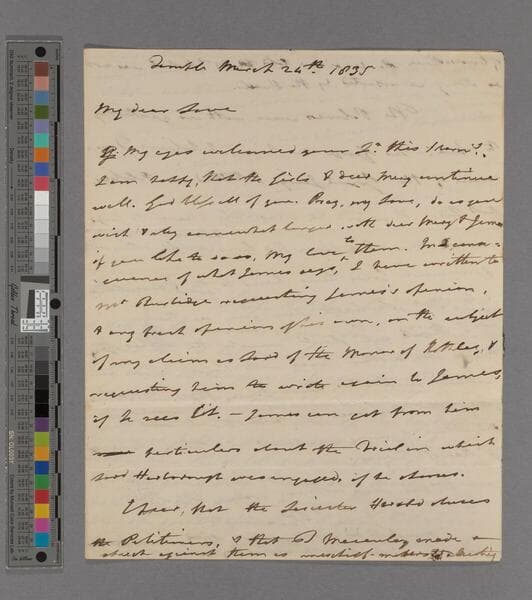 Temple March 24th. 1835
My dear Love
My eyes welcomed your Lr. this morng.
I am happy, that the Girls & dear Mary continue
well. God bless all of you. Pray, my Love, do as you
wish & stay somewhat longer with dear Mary & James
if you like to do so. My love to them. In conse-
quence of what James says, I have written to
Mr requesting James's opinion,
& any best opinion of his own, on the subject
of my claim as Lord of the Manor of Rothley, &
requesting him to write again to James,
if he sees fit. — James can get from him
particulars about the Trial in which
Lord Harborough was engaged, if he chooses.
I hear, that the Leicester Herald abuses
the Petitioners, & that Macaulay made a
against them as mischief-makers